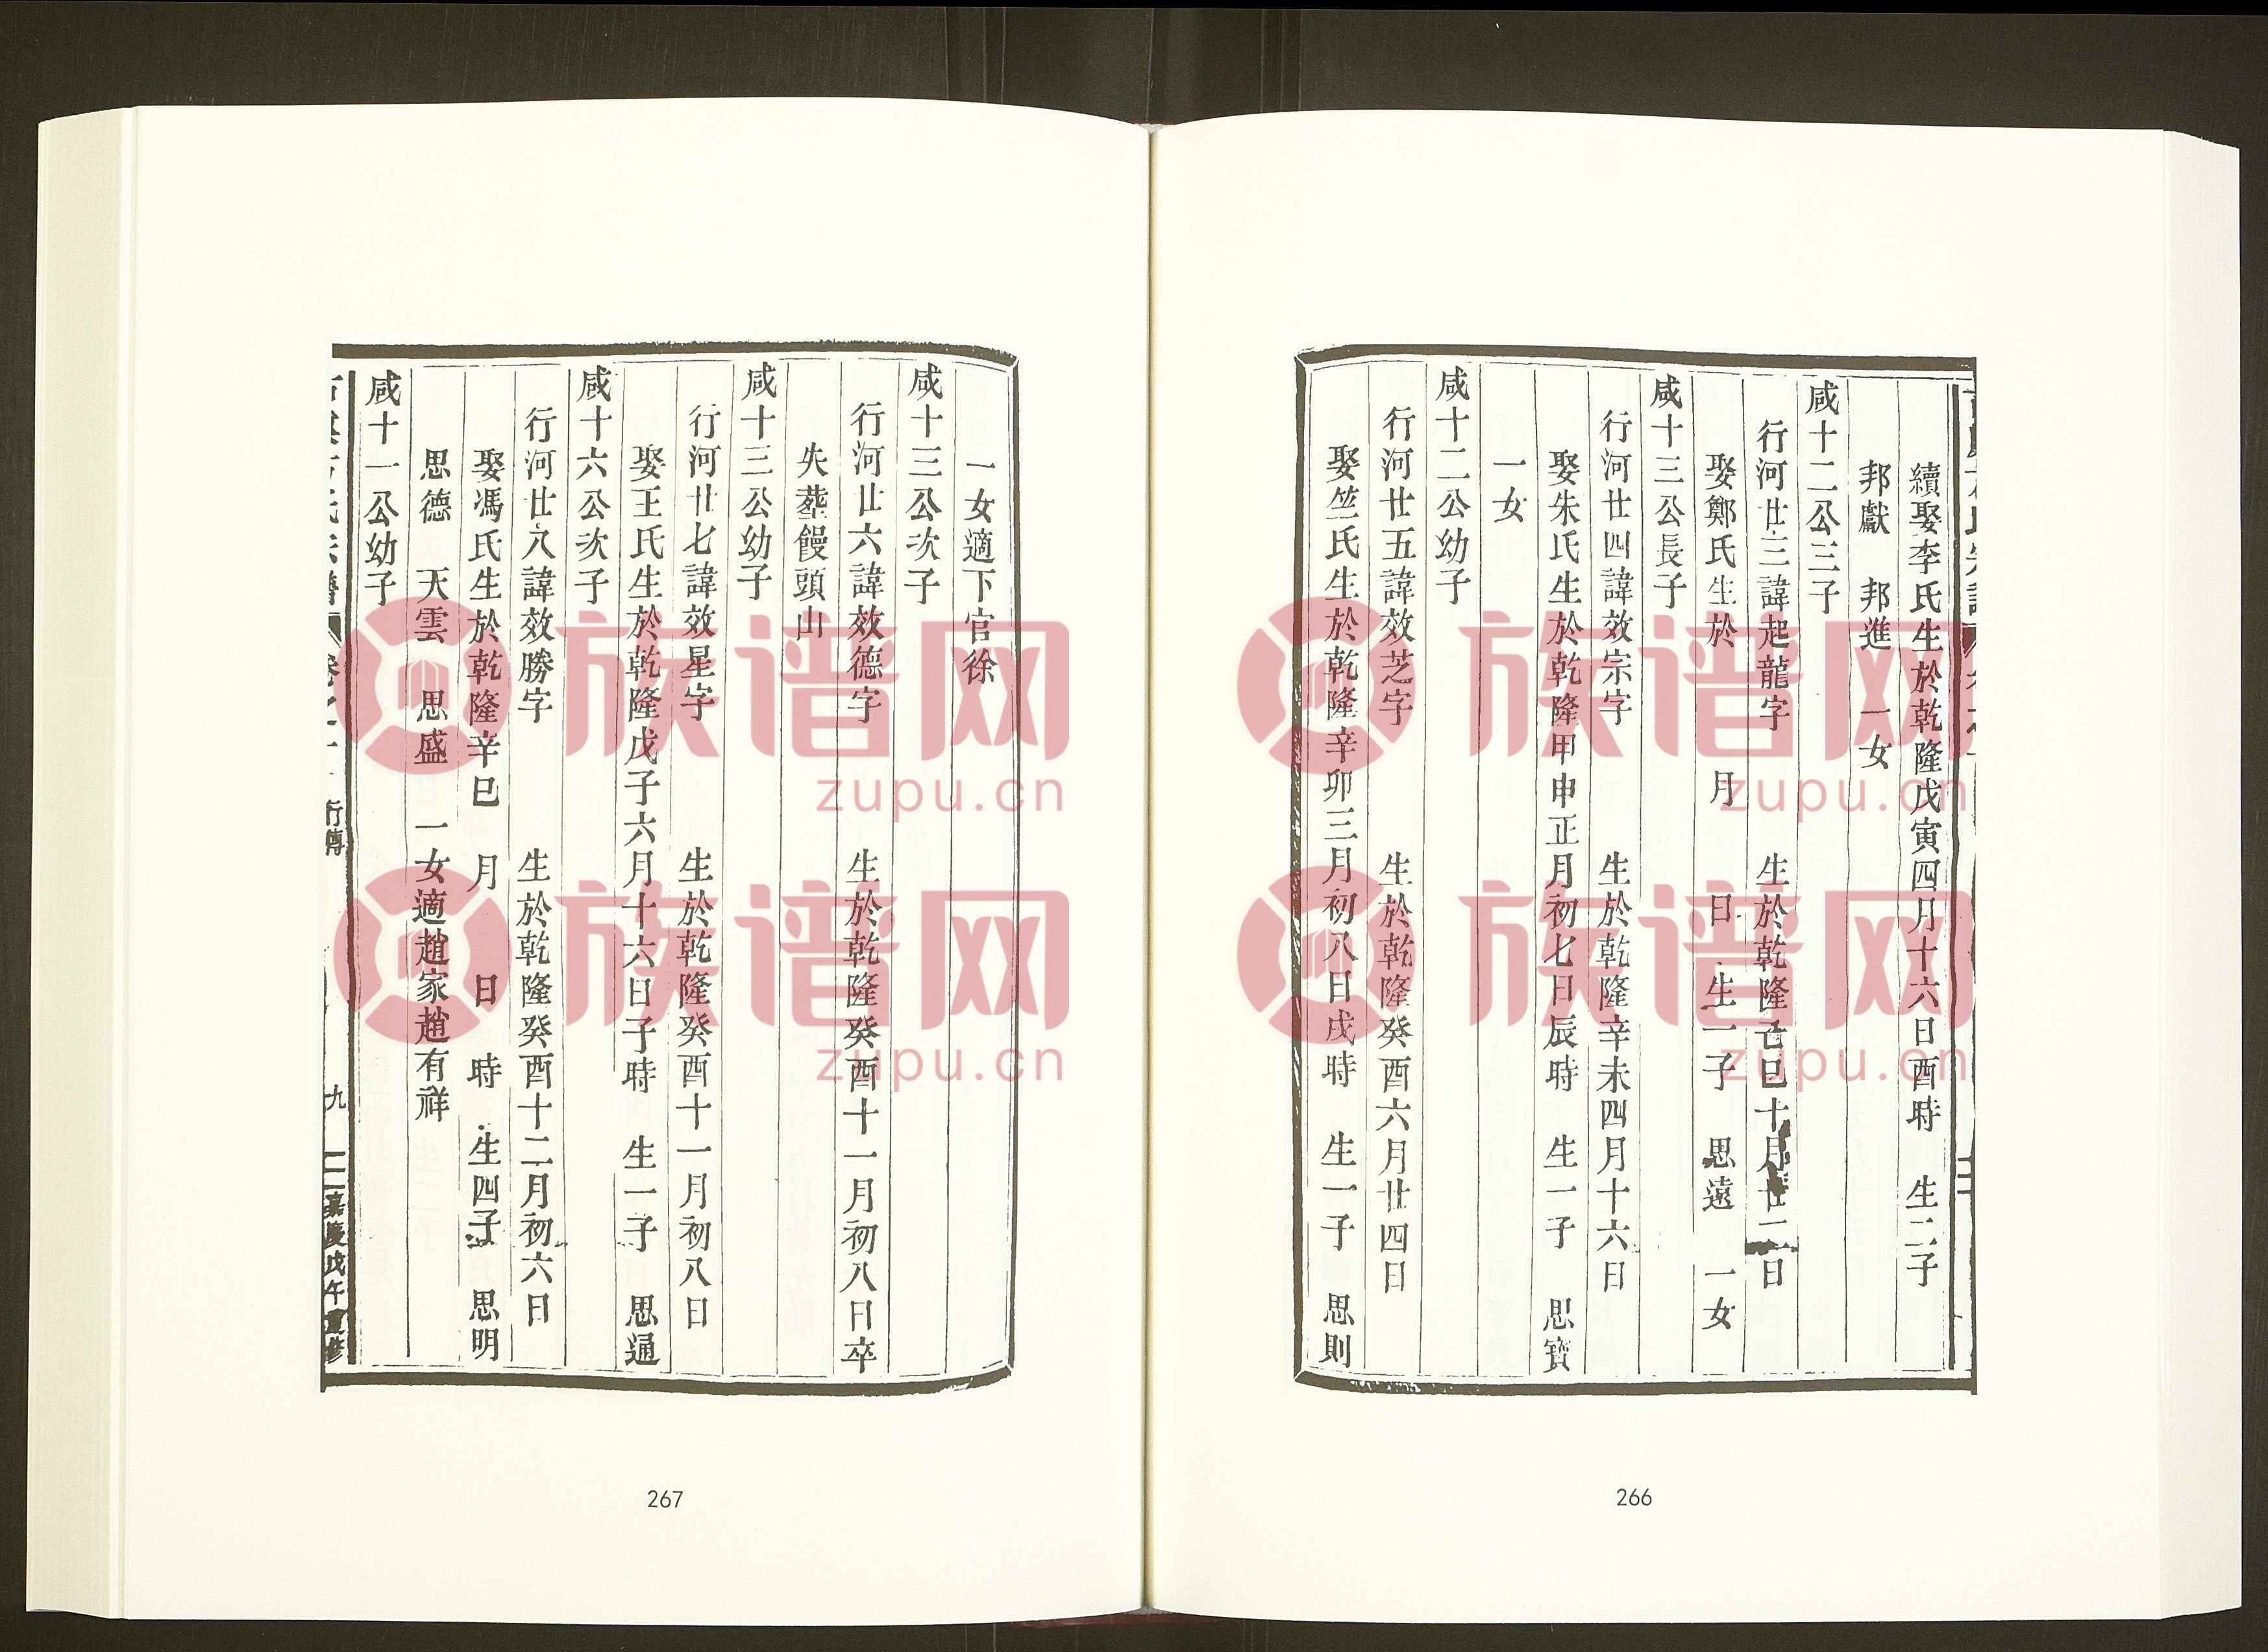 續娶李氏生於乾隆戊寅四月十六日酉時 生二子
邦獻 邦進 一女
咸十二公三子
行河廿三諱起龍字 生於乾隆己巳十月廿二日
娶鄭氏生於 月 日 生一子 思遠 一女
咸十三公長子
行河廿四諱效宗字 生於乾隆辛未四月十六日
娶朱氏生於乾隆甲申正月初七日辰時 生一子 思寶
一女
咸十二公幼子
行河廿五諱效芝字 生於乾隆癸酉六月廿四日
娶竺氏生於乾隆辛卯三月初八日戌時 生一子 思則
266
一女適下官徐
咸十三公次子
行河廿六諱效德字 生於乾隆癸酉十一月初八日卒
失塟饅頭山
咸十三公幼子
行河廿七諱效星字 生於乾隆癸酉十一月初八日
娶王氏生於乾隆戊子六月十六日子時 生一子 思通
咸十六公次子
行河廿八諱效勝字 生於乾隆癸酉十二月初六日
娶馮氏生於乾隆辛巳 月 日 時 生四子 思明
思德 天雲 思盛 一女適趙家趙有祥
咸十一公幼子
行傳 九 嘉慶戊午重修
267
族谱网
zupu.cn
族谱网
zupu.cn
族谱网
zupu.cn
族谱网
zupu.cn